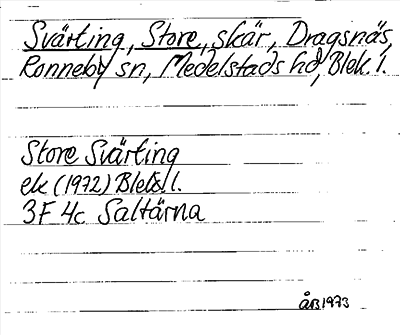 Svärting, Store, skär, Dragsnäs,
Ronneby sn, Medelstads hd, Blek. l.
Store Svärting
ek (1972) Blek. l.
3F 4c Saltärna
ÅB 1973